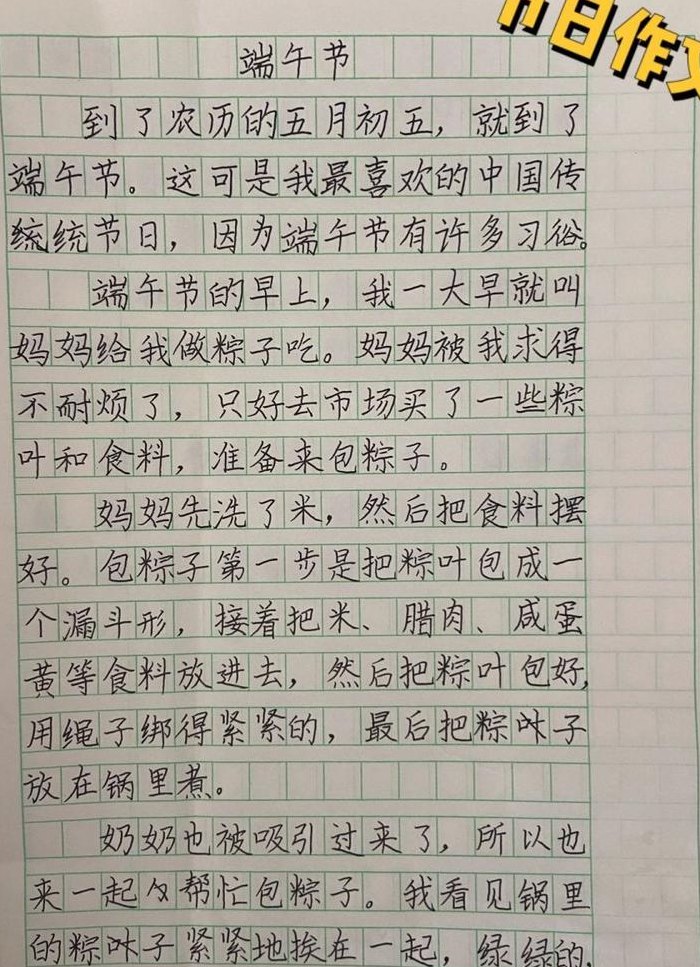 节日作文
端午节
到了农历的五月初五，就到了
端午节。这可是我最喜欢的中国传
统统节日，因为端午节有许多习俗。
端午节的早上，我一大早就叫
妈妈给我做粽子吃。妈妈被我求得
不耐烦了，只好去市场买了一些粽
叶和食料，准备来包粽子。
妈妈先洗了米，然后把食料摆
好。包粽子第一步是把粽叶包成一
个漏斗形，接着把米、腊肉、咸蛋
黄等食料放进去，然后把粽叶包好，
用绳子绑得紧紧的，最后把粽叶子
放在锅里煮。
奶奶也被吸引过来了，所以也
来一起帮忙包粽子。我看见锅里
的粽叶子紧紧地挨在一起，绿绿的，